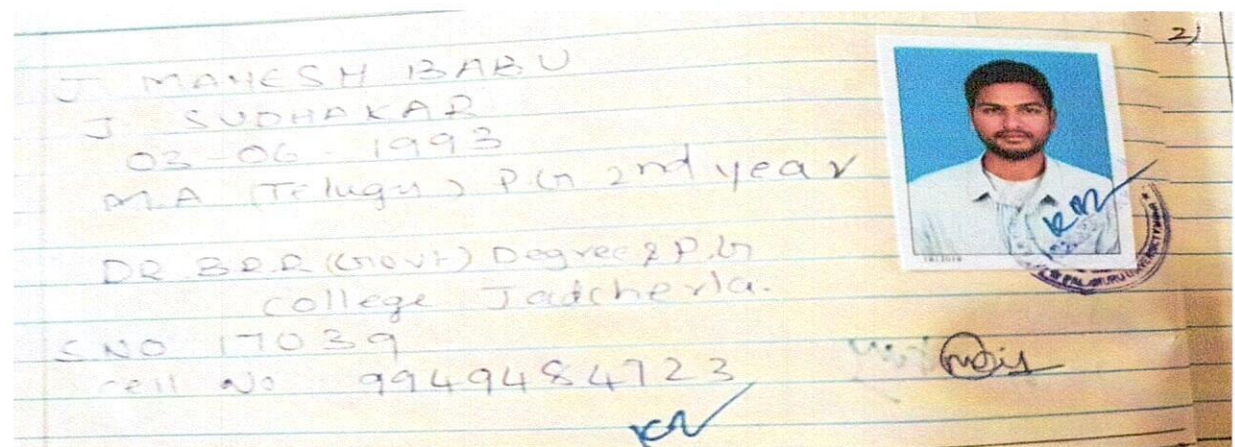 2)
J. MAHESH BABU
J. SUDHAKAR
03-06 1993
M.A (Telugu) P.G 2nd year
DR BRR (Govt) Degree & P.G
college Jadcherla.
S.NO 17039
cell No 9949484723